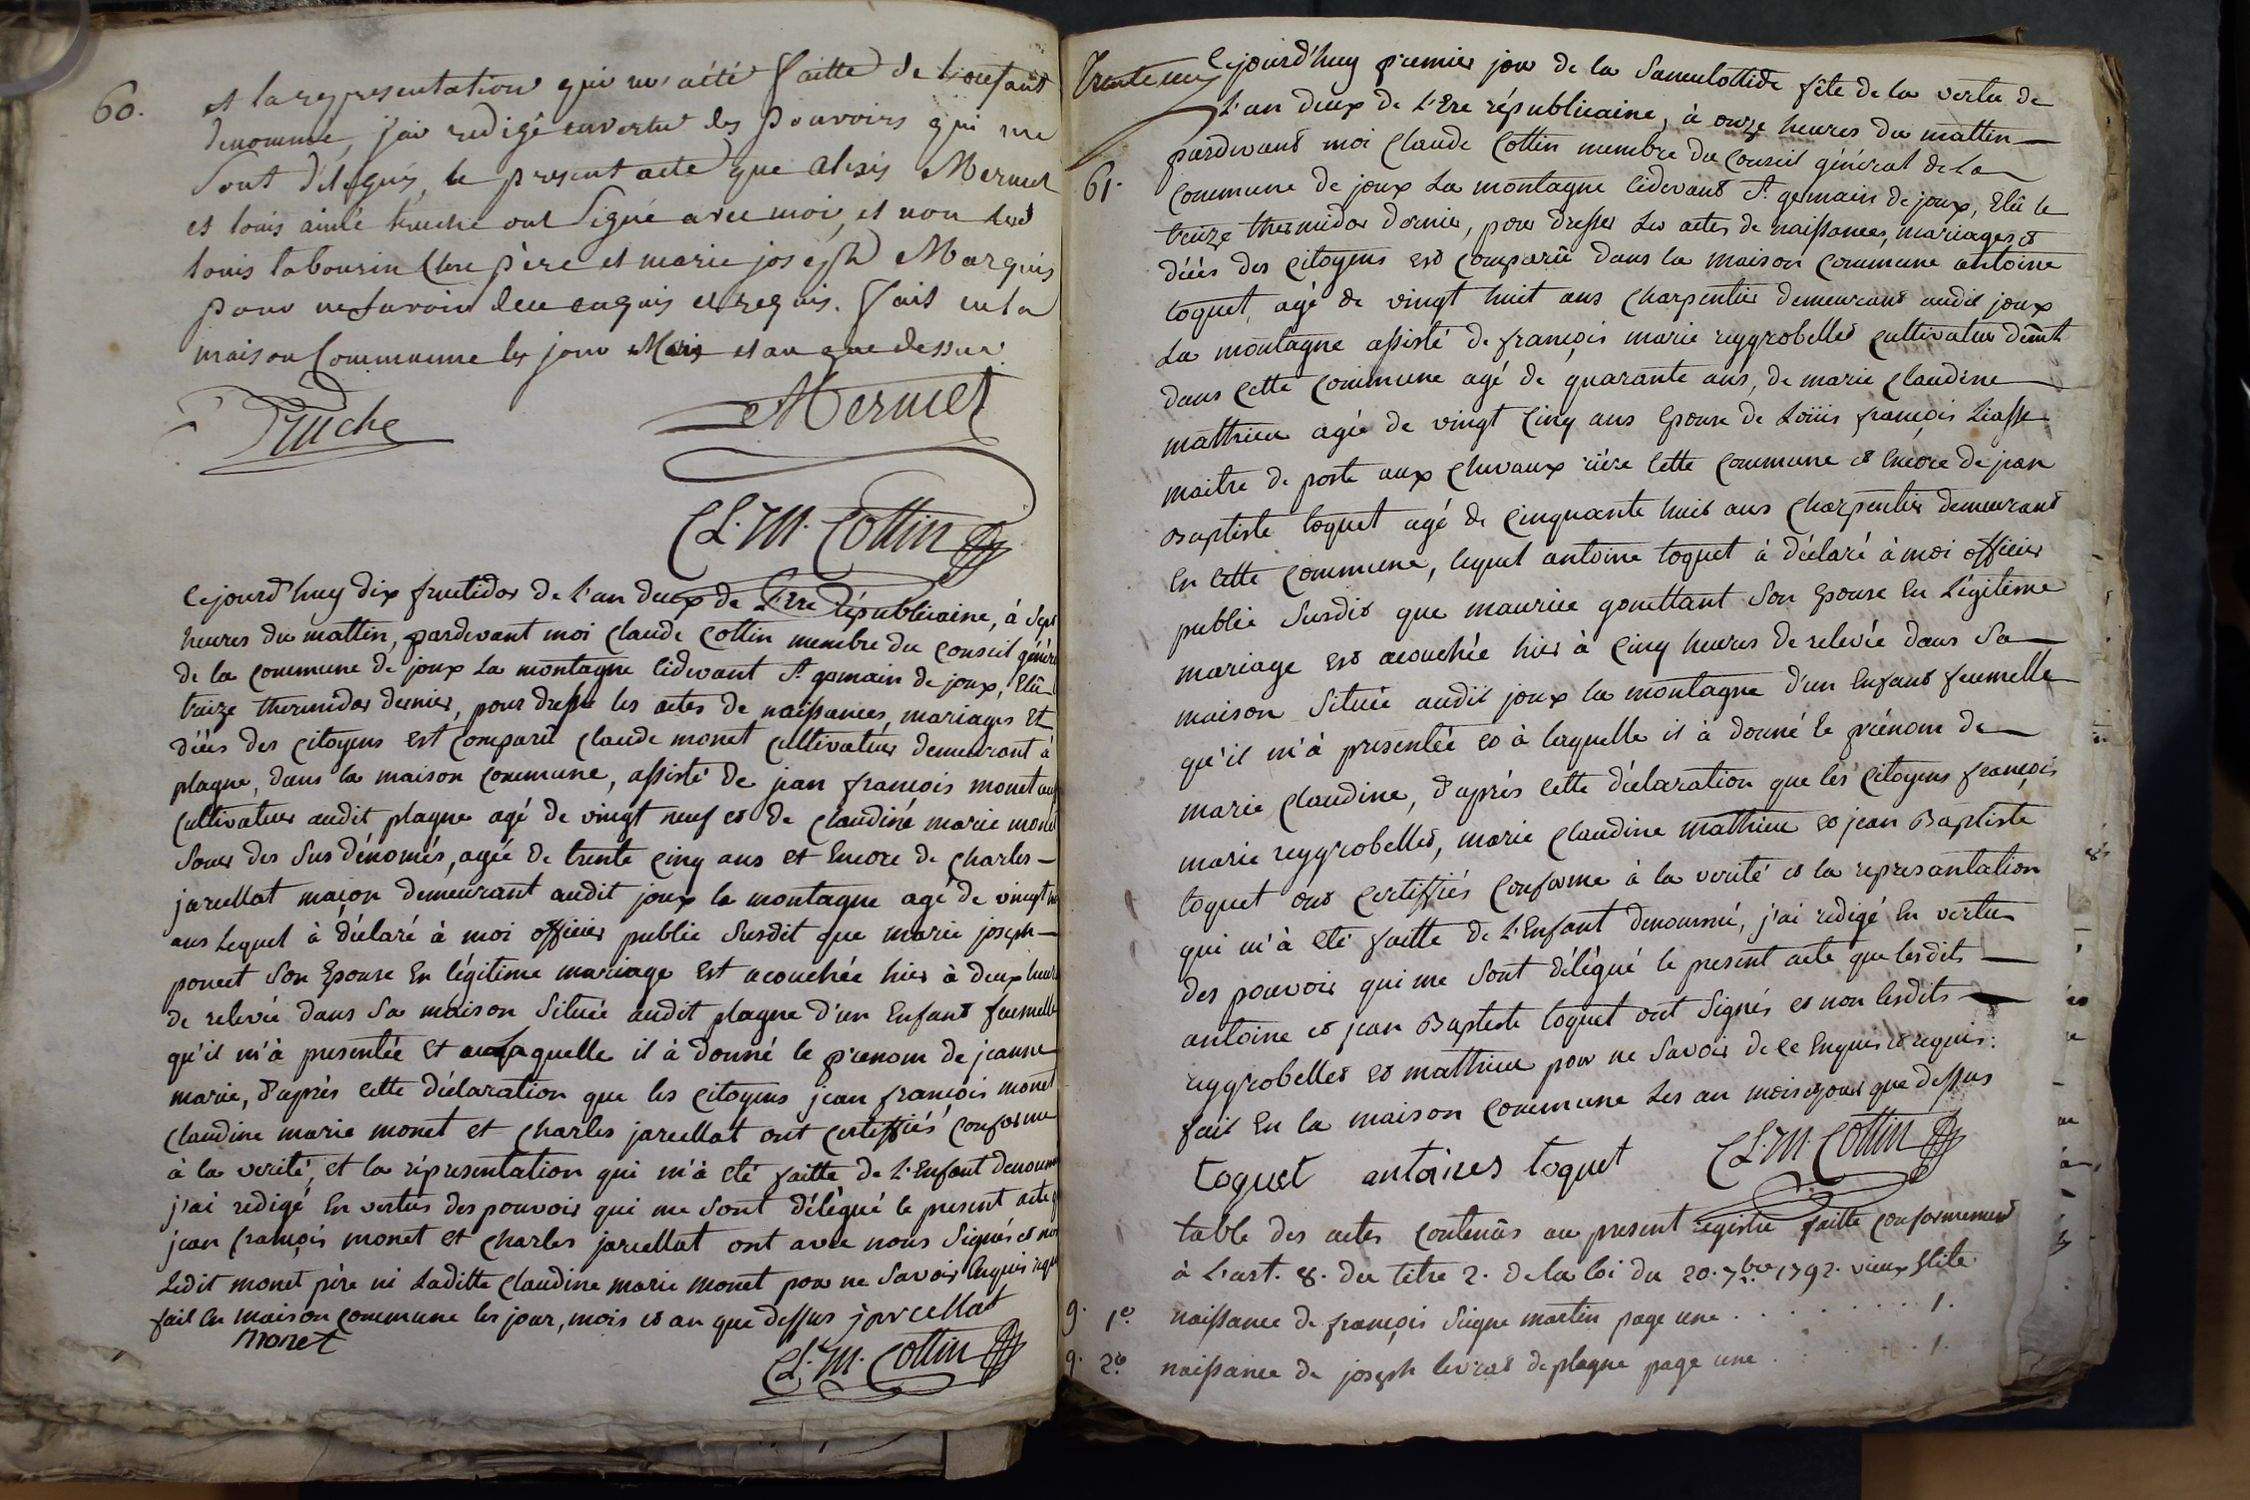 60.
et la representation qui m'a été faitte de l'enfant
denommé, j'ai redigé en vertu des pouvoirs qui me
sont délégués, le present acte que alexis Mermet
et louis aimé truche ont signé avec moi, et non led
louis tabourin Clere père et marie joseph Marquis
pour ne savoir de ce enquis et requis. fait en la
maison Commune les jour Mois et an que dessus
Truche Mermet
CL. M. Cottin
Cejourd'huy dix fructidor de l'an deux de L'Ere républicaine, à sept
heures du mattin, pardevant moi Claude Cottin membre du Conseil génér
de la Commune de joux La montagne cidevant St. germain de joux, Elû
treize thermidor dernier, pour dresser les actes de naissances, mariages Et
décès des Citoyens est Comparû Claude monet Cultivateur demeurant à
plagne, dans la maison Commune, assisté de jean françois monet
Cultivateur audit plagne agé de vingt neuf et de Claudine marie monet
soeur des sus dénomés, agée de trente Cinq ans et Encore de Charles
jarcellat maçon demeurant audit joux la montagne agé de vingt
ans Lequel à déclaré à moi officier public susdit que marie joseph
poncet son Epouse En légitime mariage Est acouchée hier à deux heures
de relevée dans sa maison située audit plagne d'un Enfant feumelle
qu'il m'à presentée et a laquelle il à donné le prenom de jeanne
marie, d'après cette déclaration que les Citoyens jean françois monet
Claudine marie monet et Charles jarcellat ont Certiffiés Conforme
à la verité, et la répresentation qui m'à eté faitte de L'Enfant denommé
j'ai redigé En vertus des pouvoir qui me sont délégué le present acte
jean françois monet et Charles jarcellat ont avec nous signés et non
Ledit monet père ni Laditte Claudine marie monet pour ne savoir Enquis
fait En maison Commune les jour, mois et an que dessus jarcellat
monet
CL. M. Cottin
trente une
61.
Cejourd'huy premier jour de la Sanculottide fête de la vertu de
L'an deux de L'Ere républicaine, à onze heures du mattin
pardevant moi Claude Cottin membre du Conseil général de La
Commune de joux La montagne Cidevant St. germain de joux, Elû le
treize thermidor dernier, pour dresser Les actes de naissances, mariages et
décès des Citoyens est Comparû dans la maison Commune antoine
toquet, agé de vingt huit ans Charpentier demeurant audit joux
La montagne assisté de françois marie reygrobellet Cultivateur demt
dans Cette Commune agé de quarante ans, de marie Claudine
mathieu agée de vingt Cinq ans Epouse de Loüis françois Liasse
maitre de poste aux Chevaux rière Cette Commune et Encore de jean
Baptiste toquet agé de Cinquante huit ans Charpentier demeurant
En Cette Commune, lequel antoine toquet à déclaré à moi officier
public susdit que maurice gonettant son Epouse En Légitime
mariage est acouchée hier à Cinq heures de relevée dans sa
maison située audit joux la montagne d'un Enfant feumelle
qu'il m'à presentée et à laquelle il à donné le prénom de
marie Claudine, d'après Cette déclaration que les Citoyens françois
marie reygrobellet, marie Claudine mathieu et jean Baptiste
toquet ont Certiffiés Conforme à la verité et la represantation
qui m'à eté faitte de L'Enfant denommé, j'ai redigé En vertu
des pouvoir qui me sont délégué le present acte que lesdits
antoine et jean Baptiste toquet ont signés et non lesdits
reygrobellet et mathieu pour ne savoir de Ce Enquis et requis.
fait En la maison Commune Les an mois et jour que dessus
toquet antoines toquet CL. M. Cottin
table des actes Contenûs au present registre faitte Conformement
à L'art. 8. du titre 2. de la loi du 20. 7bre 1792. vieux stile
9. 1º naissance de françois Seigne martin page une . . . . . . . . 1.
9. 2º naissance de joseph levrat de plagne page une . . . . . . 1.